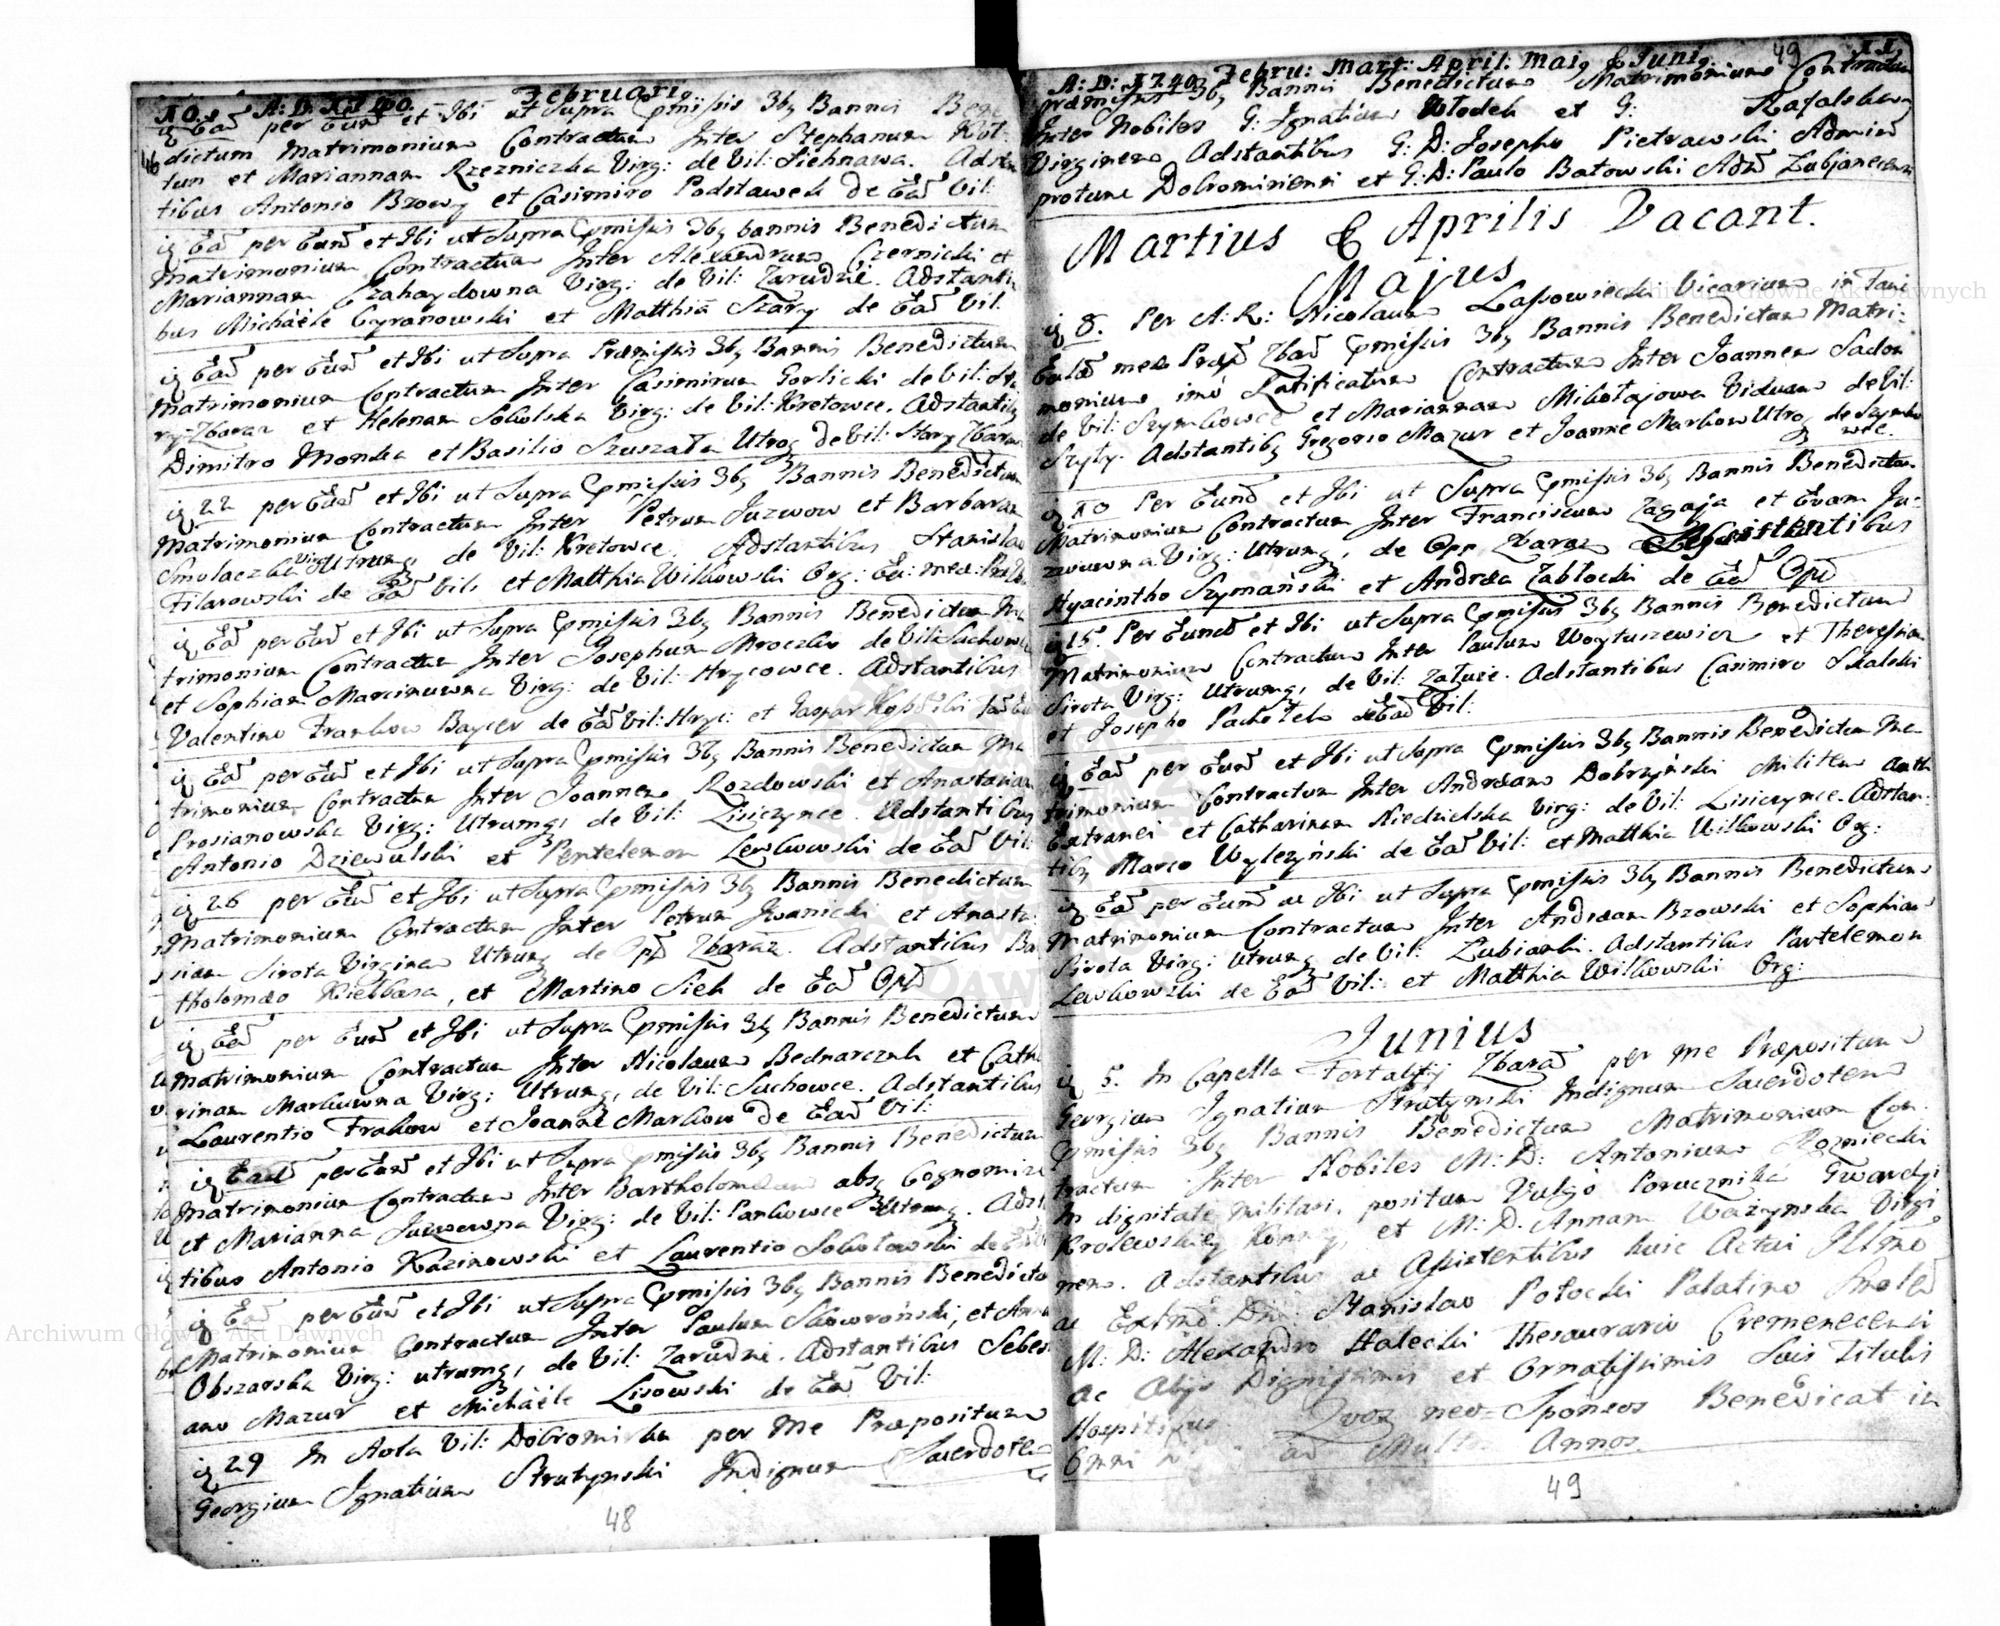 10. A: D: 1740. Februarij
iz Ead per Eund et Ibi ut Supra pmissis 3bz Bannis Bene
dictum Matrimonium Contractum Inter Stephanum Kot
tun et Mariannam Rzezniczka Virg: de Vil: Siehnawa. Adstan
tibus Antonio Bzowy et Casimiro Podstawek de Ead Vil:
iz Ead per Eund et Ibi ut Supra pmissis 3bz bannis Benedictum
Matrimonium Contractum Inter Alexandrum Czernicki et
Mariannam Czahaydowna Virg: de Vil: Zarudzie. Adstanti
bus Michäele Cyranowski et Matthia Szary de Ead Vil:
iz Ead per Eund et Ibi ut Supra Præmissis 3bz Bannis Benedictum
Matrimonium Contractum Inter Casimirum Gorlicki de Vil: Sta
ry-Zbaraz et Helenam Sokolska Virg: de Vil: Kretowce. Adstantibz
Dimitro Monska et Basilio Szuszala Utroz de Vil: Stary Zbaraz
iz 22 per Eund et Ibi ut Supra pmissis 3bz Bannis Benedictum
Matrimonium Contractum Inter Petrum Juzwow et Barbaram
Smolaczka Virg Utrumq, de Vil: Kretowce. Adstantibus Stanislao
Filarowski de Ead Vil: et Matthia Wilkowski Org: Ec: meæ
iz Ead per Eund et Ibi ut Supra pmissis 3bz Bannis Benedictum Ma
trimonium Contractum Inter Josephum Mroczko de Vil: Suchowce
et Sophiam Marcinowna Virg: de Vil: Hrycowce. Adstantibus
Valentino Frankow Bayier de Ead Vil: Hryc: et Gaspar
iz Ead per Eund et Ibi ut Supra pmissis 3bz Bannis Benedictum Ma
trimonium Contractum Inter Joannem Rozdowski et Anastasiam
Prosianowska Virg: Utrumq, de Vil: Lisiczynce. Adstantibus
Antonio Dziewulski et Pentelemon Lewkowski de Ead Vil:
iz 26 per Eund et Ibi ut Supra pmissis 3bz Bannis Benedictum
Matrimonium Contractum Inter Petrum Iwanicki et Anasta
siam Sirota Virginem Utrumq de Opd Zbaraz. Adstantibus Bar
tholomæo Kielbasa, et Martino Siek de Ead Opd
iz Ead per Eund et Ibi ut Supra pmissis 3bz Bannis Benedictum
Matrimonium Contractum Inter Nicolaum Bednarczuk et Catha
rinam Markowna Virg: Utrumq, de Vil: Suchowce. Adstantibus
Laurentio Frakow et Joanne Markow de Ead Vil:
iz Ead per Eund et Ibi ut Supra pmissis 3bz Bannis Benedictum
Matrimonium Contractum Inter Bartholomæum absq Cognomine
et Marianna Juzwowna Virg: de Vil: Pankowce Utrumq. Adstan
tibus Antonio Kazinowski et Laurentio Sokolowski de
iz Ead per Eund et Ibi ut Supra pmissis 3bz Bannis Benedictum
Matrimonium Contractum Inter Paulum Skworoński, et Anna
Obszarska Virg: utrumq, de Vil: Zarudzie. Adstantibus Sebesti
ano Mazur et Michäele Lisowski de Ead Vil:
iz 29 In Aula Vil: Dobromirka per Me Præpositum
Georgium Ignatium Strutynski Indignum Sacerdotem
48
A: D: 1740. Febru: Mart: April: Maij & Junij. 49 11.
præmissis 3bz Bannis Benedictum Matrimonium Contractum
Inter Nobiles G: Ignatium Wlodek et G: Rafalska
Virginem Adstantibus G: D: Josepho Pietrawski Admini
protunc Dobromiriensi et G: D: Paulo Batowski Adm Lubjanecensi
Martius & Aprilis Vacant.
Majus
iz 8. Per A: R: Nicolaum Lassowiecki Vicarium in
mea Præp Zbar pmissis 3bz Bannis Benedictum Matri:
monium imò Ratificatum Contractum Inter Joannem Sadon
de Vil: Szymkowce et Mariannam Mikołajowa Viduam de Vil:
Szyly. Adstantibz Gregorio Mazur et Joanne Markow Utroz de Szymko
wce.
iz 10 Per Eund et Ibi ut Supra pmissis 3bz Bannis Benedictum
Matrimonium Contractum Inter Franciscum Zagaja et Evam Ju-
zwowna Virg: Utrumq, de Opp Zbaraz Assistentibus
Hyacintho Szymański et Andrea Zabłocki de Ead Opd
iz 15. Per Eund et Ibi ut Supra pmissis 3bz Bannis Benedictum
Matrimonium Contractum Inter Paulum Woytuszewicz et Theressiam
Sirota Virg: Utrumq, de Vil: Załuże. Adstantibus Casimiro Skalski
et Josepho Pachołek de Ead Vil:
iz Ead per Eund et Ibi ut Supra pmissis 3bz Bannis Benedictum Ma
trimonium Contractum Inter Andream Dobrzyński Militem
Extranei et Catharinam Niedzielska Virg: de Vil: Lisiczynce. Adstan:
tibz Marco Wylezyński de Ead Vil: et Matthia Wilkowski Org:
iz Ead per Eund ac Ibi ut Supra pmissis 3bz Bannis Benedictum
Matrimonium Contractum Inter Andream Bzowski et Sophiam
Sirota Virg: Utrumq de Vil: Lubianki. Adstantibus Pantelemon
Lewkowski de Ead Vil: et Matthia Wilkowski Org:
Junius
iz 5. In Capella Fortalitij Zbaraz per Me Præpositum
Georgium Ignatium Strutynski Indignum Sacerdotem
pmissis 3bz Bannis Benedictum Matrimonium Con:
tractum Inter Nobiles M: D: Antonium Rozniecki
In dignitate Militari positum Vulgo Porucznika Gwardyi
Krolewskiey Konney, et M: D: Annam Wazynska Virgi
nem. Adstantibus ac Assistentibus huic Actui Illmo
ac Exlmo Dno Stanislao Potocki Palatino
M: D: Alexandro Halecki Thesaurario Cremenecensi
Ac Alijs Dignissimis et Ornatissimis Suis Titulis
Hospitibus Quoz neo-Sponsos Benedicat in
ad Multos Annos.
49
Archiwum Główne Akt Dawnych
Archiwum Główne Akt Dawnych